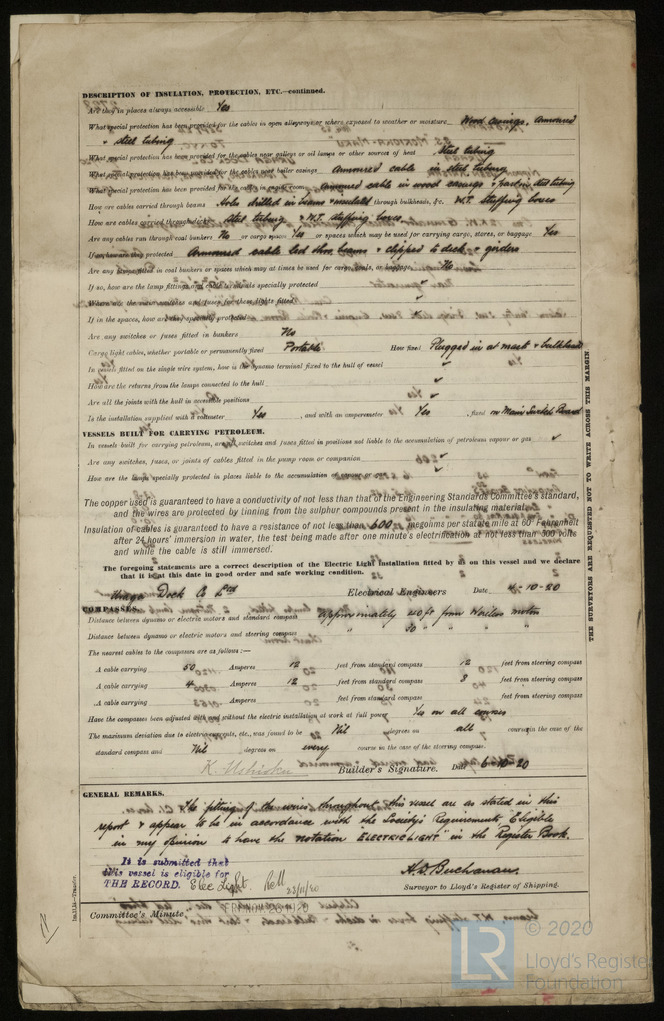 DESCRIPTION OF INSULATION, PROTECTION, ETC.—continued.
Are they in places always accessible Yes
What special protection has been provided for the cables in open alleyways or where exposed to weather or moisture Wood casings, Armoured
& steel tubing
What special protection has been provided for the cables near galleys or oil lamps or other sources of heat Steel tubing
What special protection has been provided for the cables near boiler casings Armoured cable in steel tubing
What special protection has been provided for the cables in engine room Armoured cable in wood casings & partly in steel tubing
How are cables carried through beams Holes drilled in beams & insulated through bulkheads, &c. W.T. Stuffing boxes
How are cables carried through decks Steel tubing & W.T. stuffing boxes
Are any cables run through coal bunkers No or cargo spaces Yes or spaces which may be used for carrying cargo, stores, or baggage Yes
If so, how are they protected Armoured cable led thro. beams & clipped to deck & girders
Are any lamps fitted in coal bunkers or spaces which may at times be used for cargo, coals, or baggage No
If so, how are the lamp fittings and cable terminals specially protected
Where are the main switches and fuses for these lights fitted
If in the spaces, how are they specially protected
Are any switches or fuses fitted in bunkers No
Cargo light cables, whether portable or permanently fixed Portable How fixed Plugged in at mast & bulkheads
In vessels fitted on the single wire system, how is the dynamo terminal fixed to the hull of vessel
How are the returns from the lamps connected to the hull
Are all the joints with the hull in accessible positions
Is the installation supplied with a voltmeter Yes , and with an amperemeter Yes , fixed on Main Switch Board
VESSELS BUILT FOR CARRYING PETROLEUM.
In vessels built for carrying petroleum, are all switches and fuses fitted in positions not liable to the accumulation of petroleum vapour or gas
Are any switches, fuses, or joints of cables fitted in the pump room or companion
How are the lamps specially protected in places liable to the accumulation of vapour or gas
The copper used is guaranteed to have a conductivity of not less than that of the Engineering Standards Committee's standard,
and the wires are protected by tinning from the sulphur compounds present in the insulating material.
Insulation of cables is guaranteed to have a resistance of not less than 600 megohms per statute mile at 60° Fahrenheit
after 24 hours' immersion in water, the test being made after one minute's electrification at not less than 500 volts
and while the cable is still immersed.
The foregoing statements are a correct description of the Electric Light Installation fitted by us on this vessel and we declare
that it is at this date in good order and safe working condition.
Uraga Dock Co Ltd Electrical Engineers Date 4-10-20
COMPASSES.
Distance between dynamo or electric motors and standard compass approximately 40ft from Wireless motor
Distance between dynamo or electric motors and steering compass " 30 " " " "
The nearest cables to the compasses are as follows:—
A cable carrying 50 Amperes 12 feet from standard compass 12 feet from steering compass
A cable carrying 4 Amperes 12 feet from standard compass 8 feet from steering compass
A cable carrying Amperes feet from standard compass feet from steering compass
Have the compasses been adjusted with and without the electric installation at work at full power Yes on all courses
The maximum deviation due to electric currents, etc., was found to be Nil degrees on all course in the case of the
standard compass and Nil degrees on every course in the case of the steering compass.
Builder's Signature. Date 6-10-20
GENERAL REMARKS.
The fitting of the wires throughout this vessel are as stated in this
report & appear to be in accordance with the Society's Requirements, Eligible
in my opinion to have the notation "ELECTRIC LIGHT" in the Register Book.
It is submitted that
this vessel is eligible for
THE RECORD. Elec Light. 23/11/20
A.D. Buchanan.
Surveyor to Lloyd's Register of Shipping.
Committee's Minute
THE SURVEYORS ARE REQUESTED NOT TO WRITE ACROSS THIS MARGIN
LR
© 2020
Lloyd's Register
Foundation